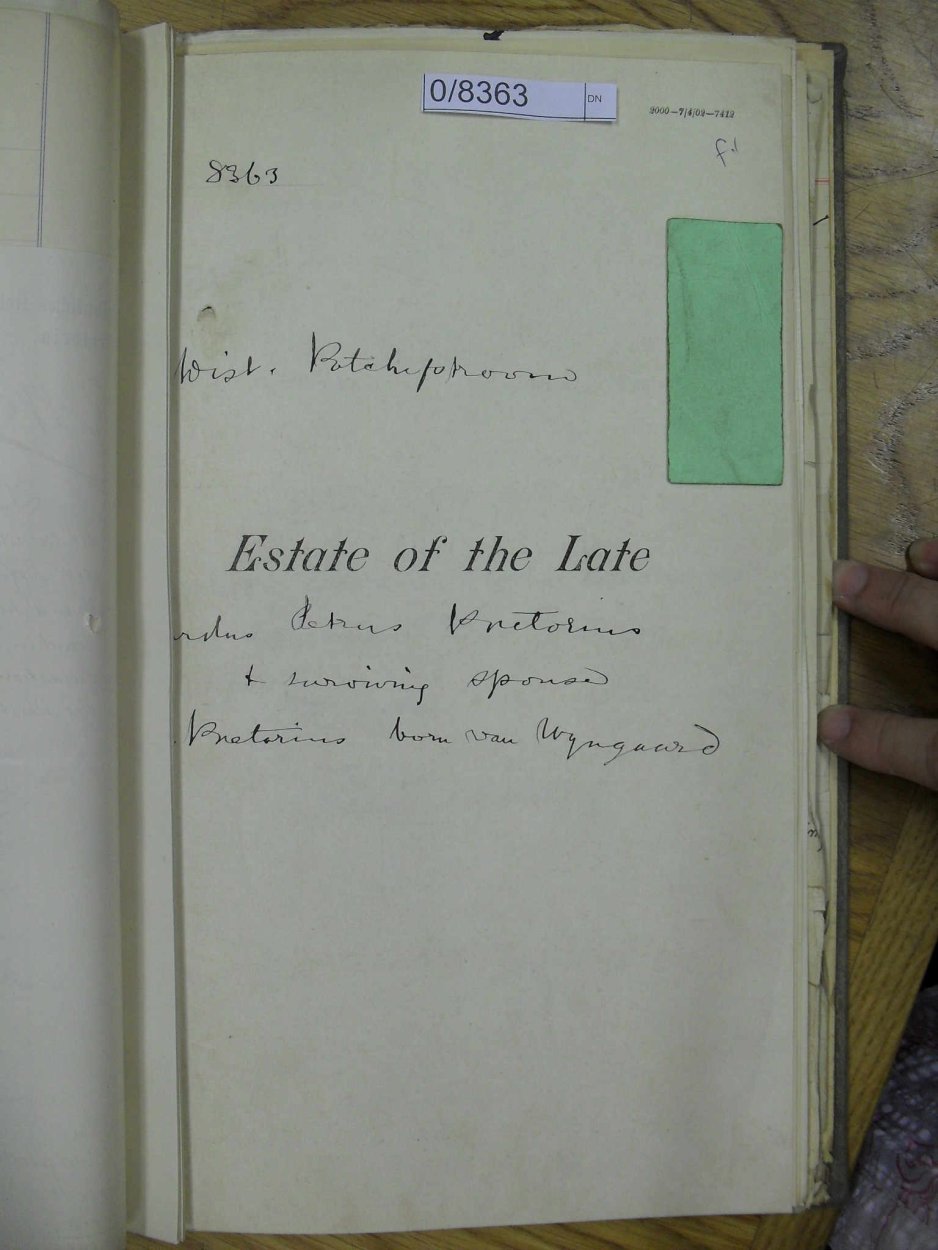 0/8363 DN
2000-7/4/02-7412
8363
Dist. Potchefstroom
Estate of the Late
rdus Petrus Pretorius
& surviving spouse
Pretorius born van Wyngaard